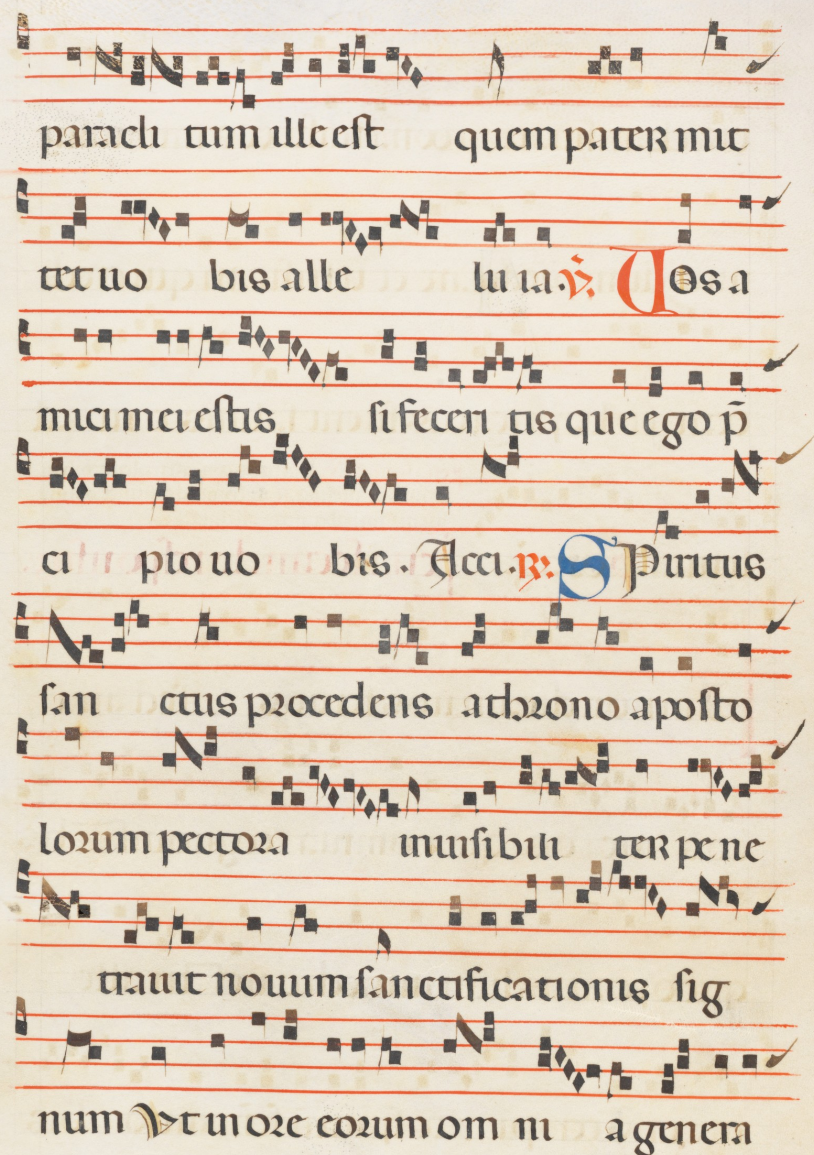 paracli tum ille est quem pater mit
tet uo bis alle lu ia. ℣. Uos a
mici mei estis si feceri tis que ego p̄
ci pio uo bis. Acci. ℟. Spiritus
san ctus procedens a throno aposto
lorum pectora inuisibili ter pe ne
trauit nouum sanctificationis sig
num Vt in ore eorum om ni a genera